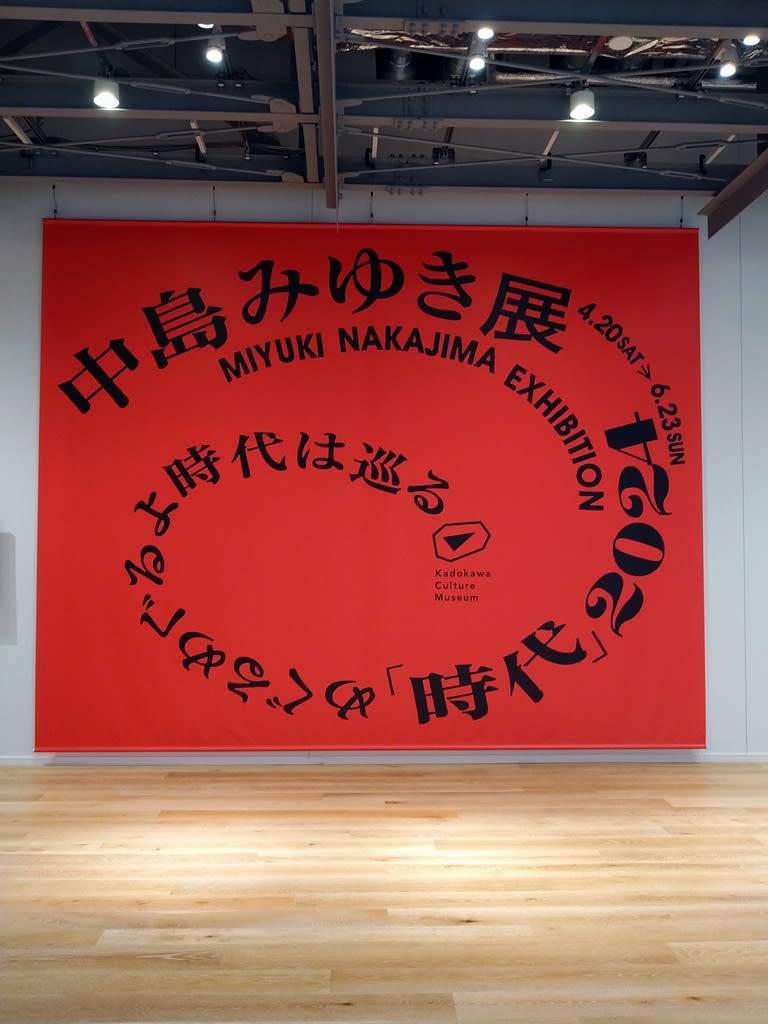 中島みゆき展
MIYUKI NAKAJIMA EXHIBITION
4.20SAT>6.23SUN
2024
「時代」
めぐるめぐるよ時代は巡る
Kadokawa
Culture
Museum